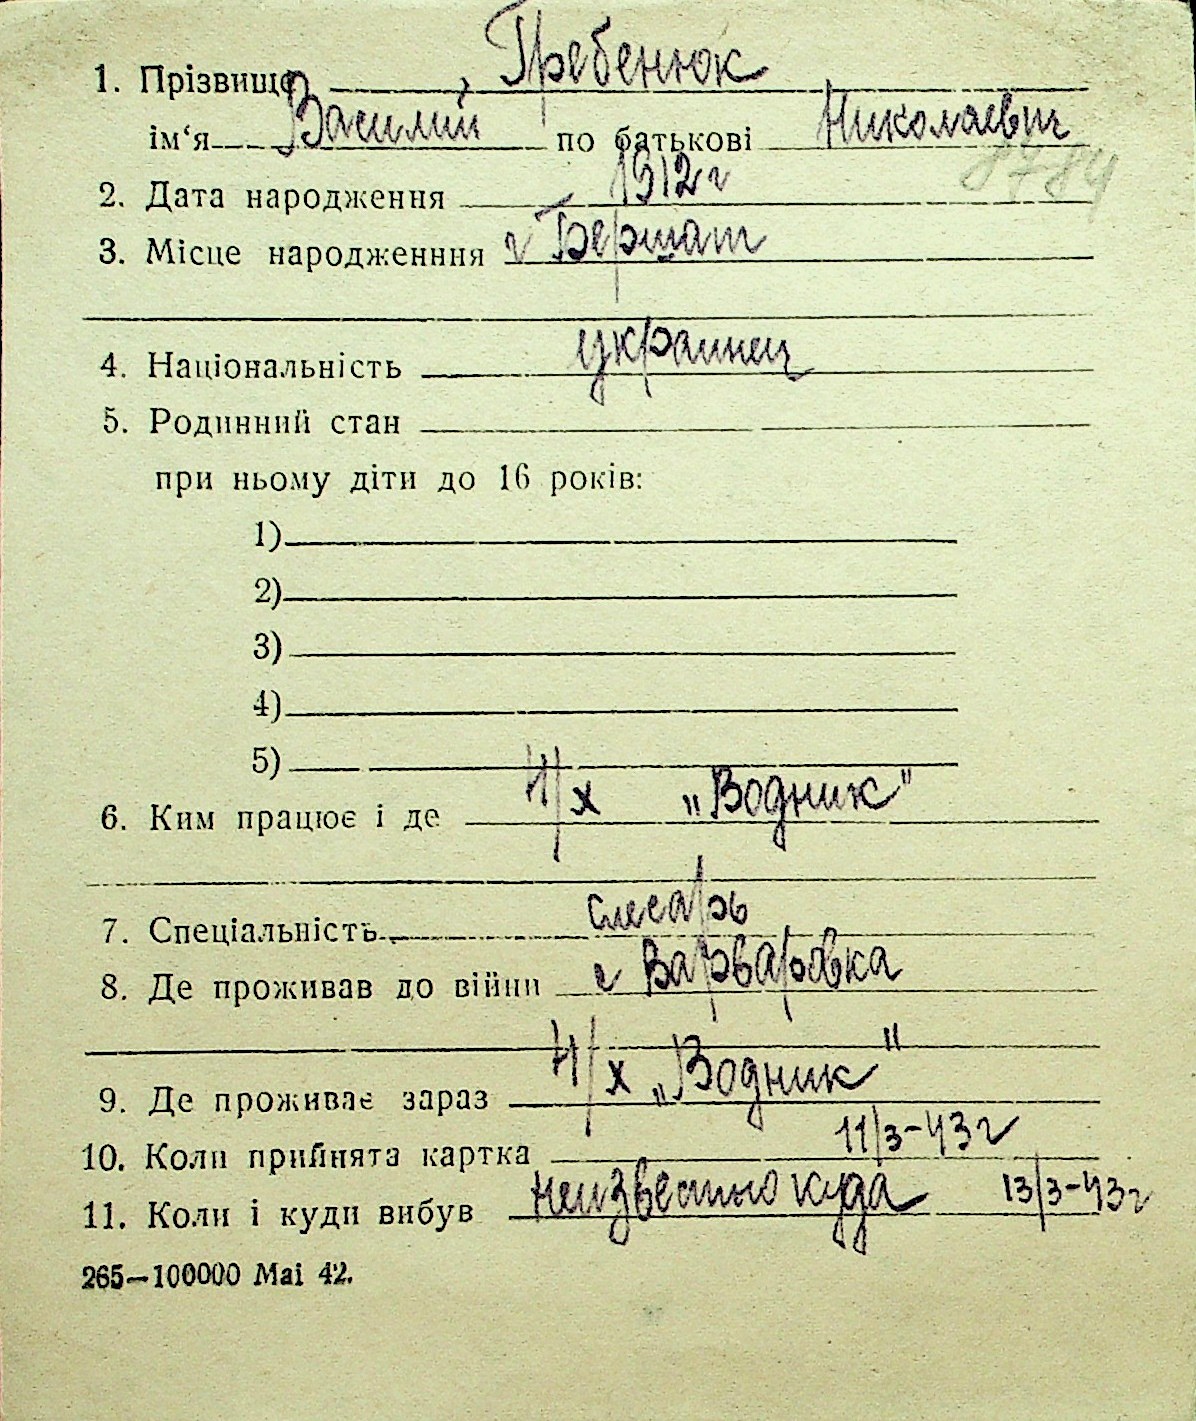 1. Прізвище Гребенюк
ім‘я Василий по батькові Николаевич
8784
2. Дата народження 1912 г
3. Місце народженння г Бершат
4. Національність украинец
5. Родинний стан
при ньому діти до 16 років:
1)
2)
3)
4)
5)
6. Ким працює і де н/х „Водник"
7. Спеціальність слесарь
8. Де проживав до війни с Варваровка
9. Де проживає зараз н/х „Водник"
10. Коли прийнята картка 11/3-43 г
11. Коли і куди вибув неизвестно куда 13/3-43 г
265—100000 Mai 42.